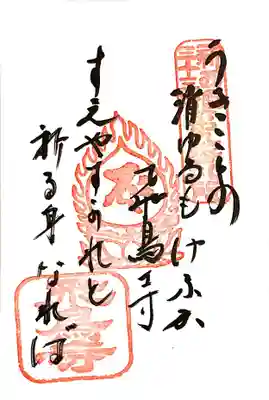 うきことの
消ゆるもけふか
飛鳥寺
すえやすかれと
祈る身なれば